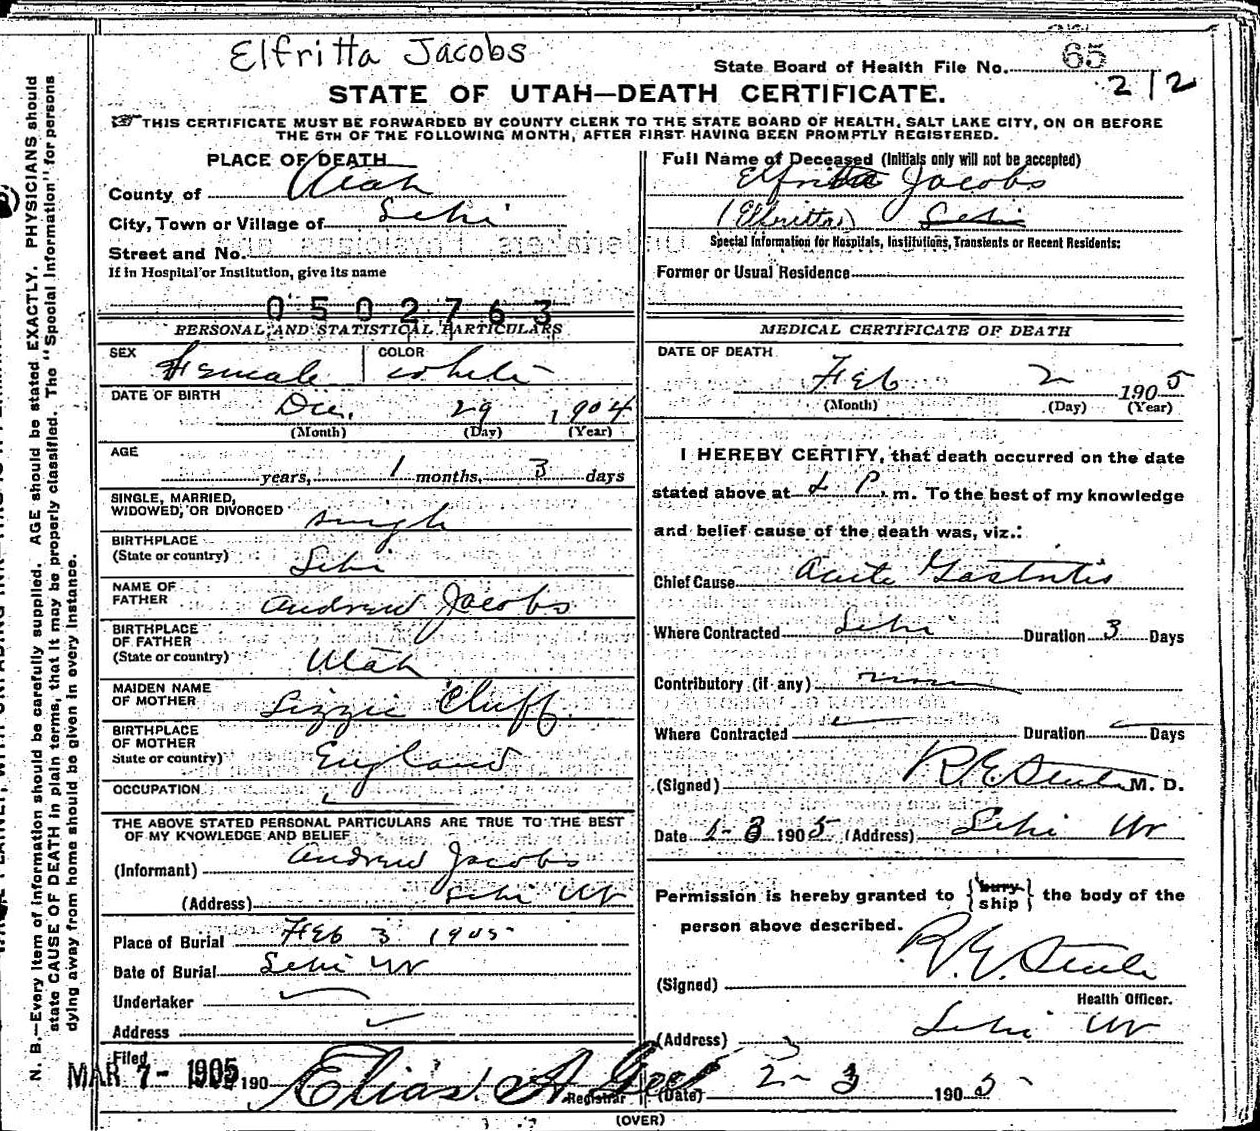 Elfritta Jacobs
State Board of Health File No. 65
212
STATE OF UTAH—DEATH CERTIFICATE.
THIS CERTIFICATE MUST BE FORWARDED BY COUNTY CLERK TO THE STATE BOARD OF HEALTH, SALT LAKE CITY, ON OR BEFORE
THE 5TH OF THE FOLLOWING MONTH, AFTER FIRST HAVING BEEN PROMPTLY REGISTERED.
PLACE OF DEATH
County of Utah
City, Town or Village of Lehi
Street and No.
If in Hospital or Institution, give its name
0502763
PERSONAL AND STATISTICAL PARTICULARS
SEX Female COLOR white
DATE OF BIRTH Dec. 29 1904
(Month) (Day) (Year)
AGE
years, 1 months, 3 days
SINGLE, MARRIED,
WIDOWED, OR DIVORCED single
BIRTHPLACE
(State or country) Lehi
NAME OF
FATHER Andrew Jacobs
BIRTHPLACE
OF FATHER
(State or country) Utah
MAIDEN NAME
OF MOTHER Lizzie Cluff
BIRTHPLACE
OF MOTHER
State or country) England
OCCUPATION
THE ABOVE STATED PERSONAL PARTICULARS ARE TRUE TO THE BEST
OF MY KNOWLEDGE AND BELIEF
(Informant) Andrew Jacobs
(Address) Lehi Ut
Place of Burial Feb 3 1905
Date of Burial Lehi Ut
Undertaker
Address
Filed
MAR 7- 1905 190 Elias A Gee
Registrar
Full Name of Deceased (Initials only will not be accepted)
Elfritta Jacobs
(Elfritta) Lehi
Special Information for Hospitals, Institutions, Transients or Recent Residents:
Former or Usual Residence
MEDICAL CERTIFICATE OF DEATH
DATE OF DEATH
Feb 2 1905
(Month) (Day) (Year)
I HEREBY CERTIFY, that death occurred on the date
stated above at P. m. To the best of my knowledge
and belief cause of the death was, viz.:
Chief Cause Acute Gastritis
Where Contracted Lehi Duration 3 Days
Contributory (if any) none
Where Contracted Duration Days
(Signed) R.E. Steele M. D.
Date 2-3 1905 (Address) Lehi Ut
Permission is hereby granted to {bury ship} the body of the
person above described.
(Signed) R.E. Steele
Health Officer.
(Address) Lehi Ut
(Date) 2-3 1905
(OVER)
N. B.—Every item of information should be carefully supplied. AGE should be stated EXACTLY. PHYSICIANS should
state CAUSE OF DEATH in plain terms, that it may be properly classified. The "Special Information" for persons
dying away from home should be given in every instance.